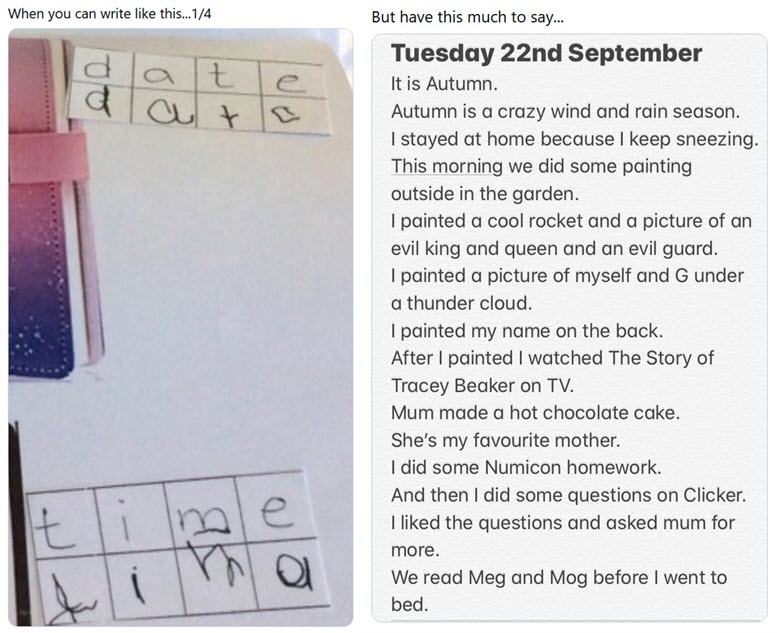 When you can write like this...1/4
d a t e
d a t e
t i m e
t i m a
But have this much to say...
Tuesday 22nd September
It is Autumn.
Autumn is a crazy wind and rain season.
I stayed at home because I keep sneezing.
This morning we did some painting
outside in the garden.
I painted a cool rocket and a picture of an
evil king and queen and an evil guard.
I painted a picture of myself and G under
a thunder cloud.
I painted my name on the back.
After I painted I watched The Story of
Tracey Beaker on TV.
Mum made a hot chocolate cake.
She's my favourite mother.
I did some Numicon homework.
And then I did some questions on Clicker.
I liked the questions and asked mum for
more.
We read Meg and Mog before I went to
bed.